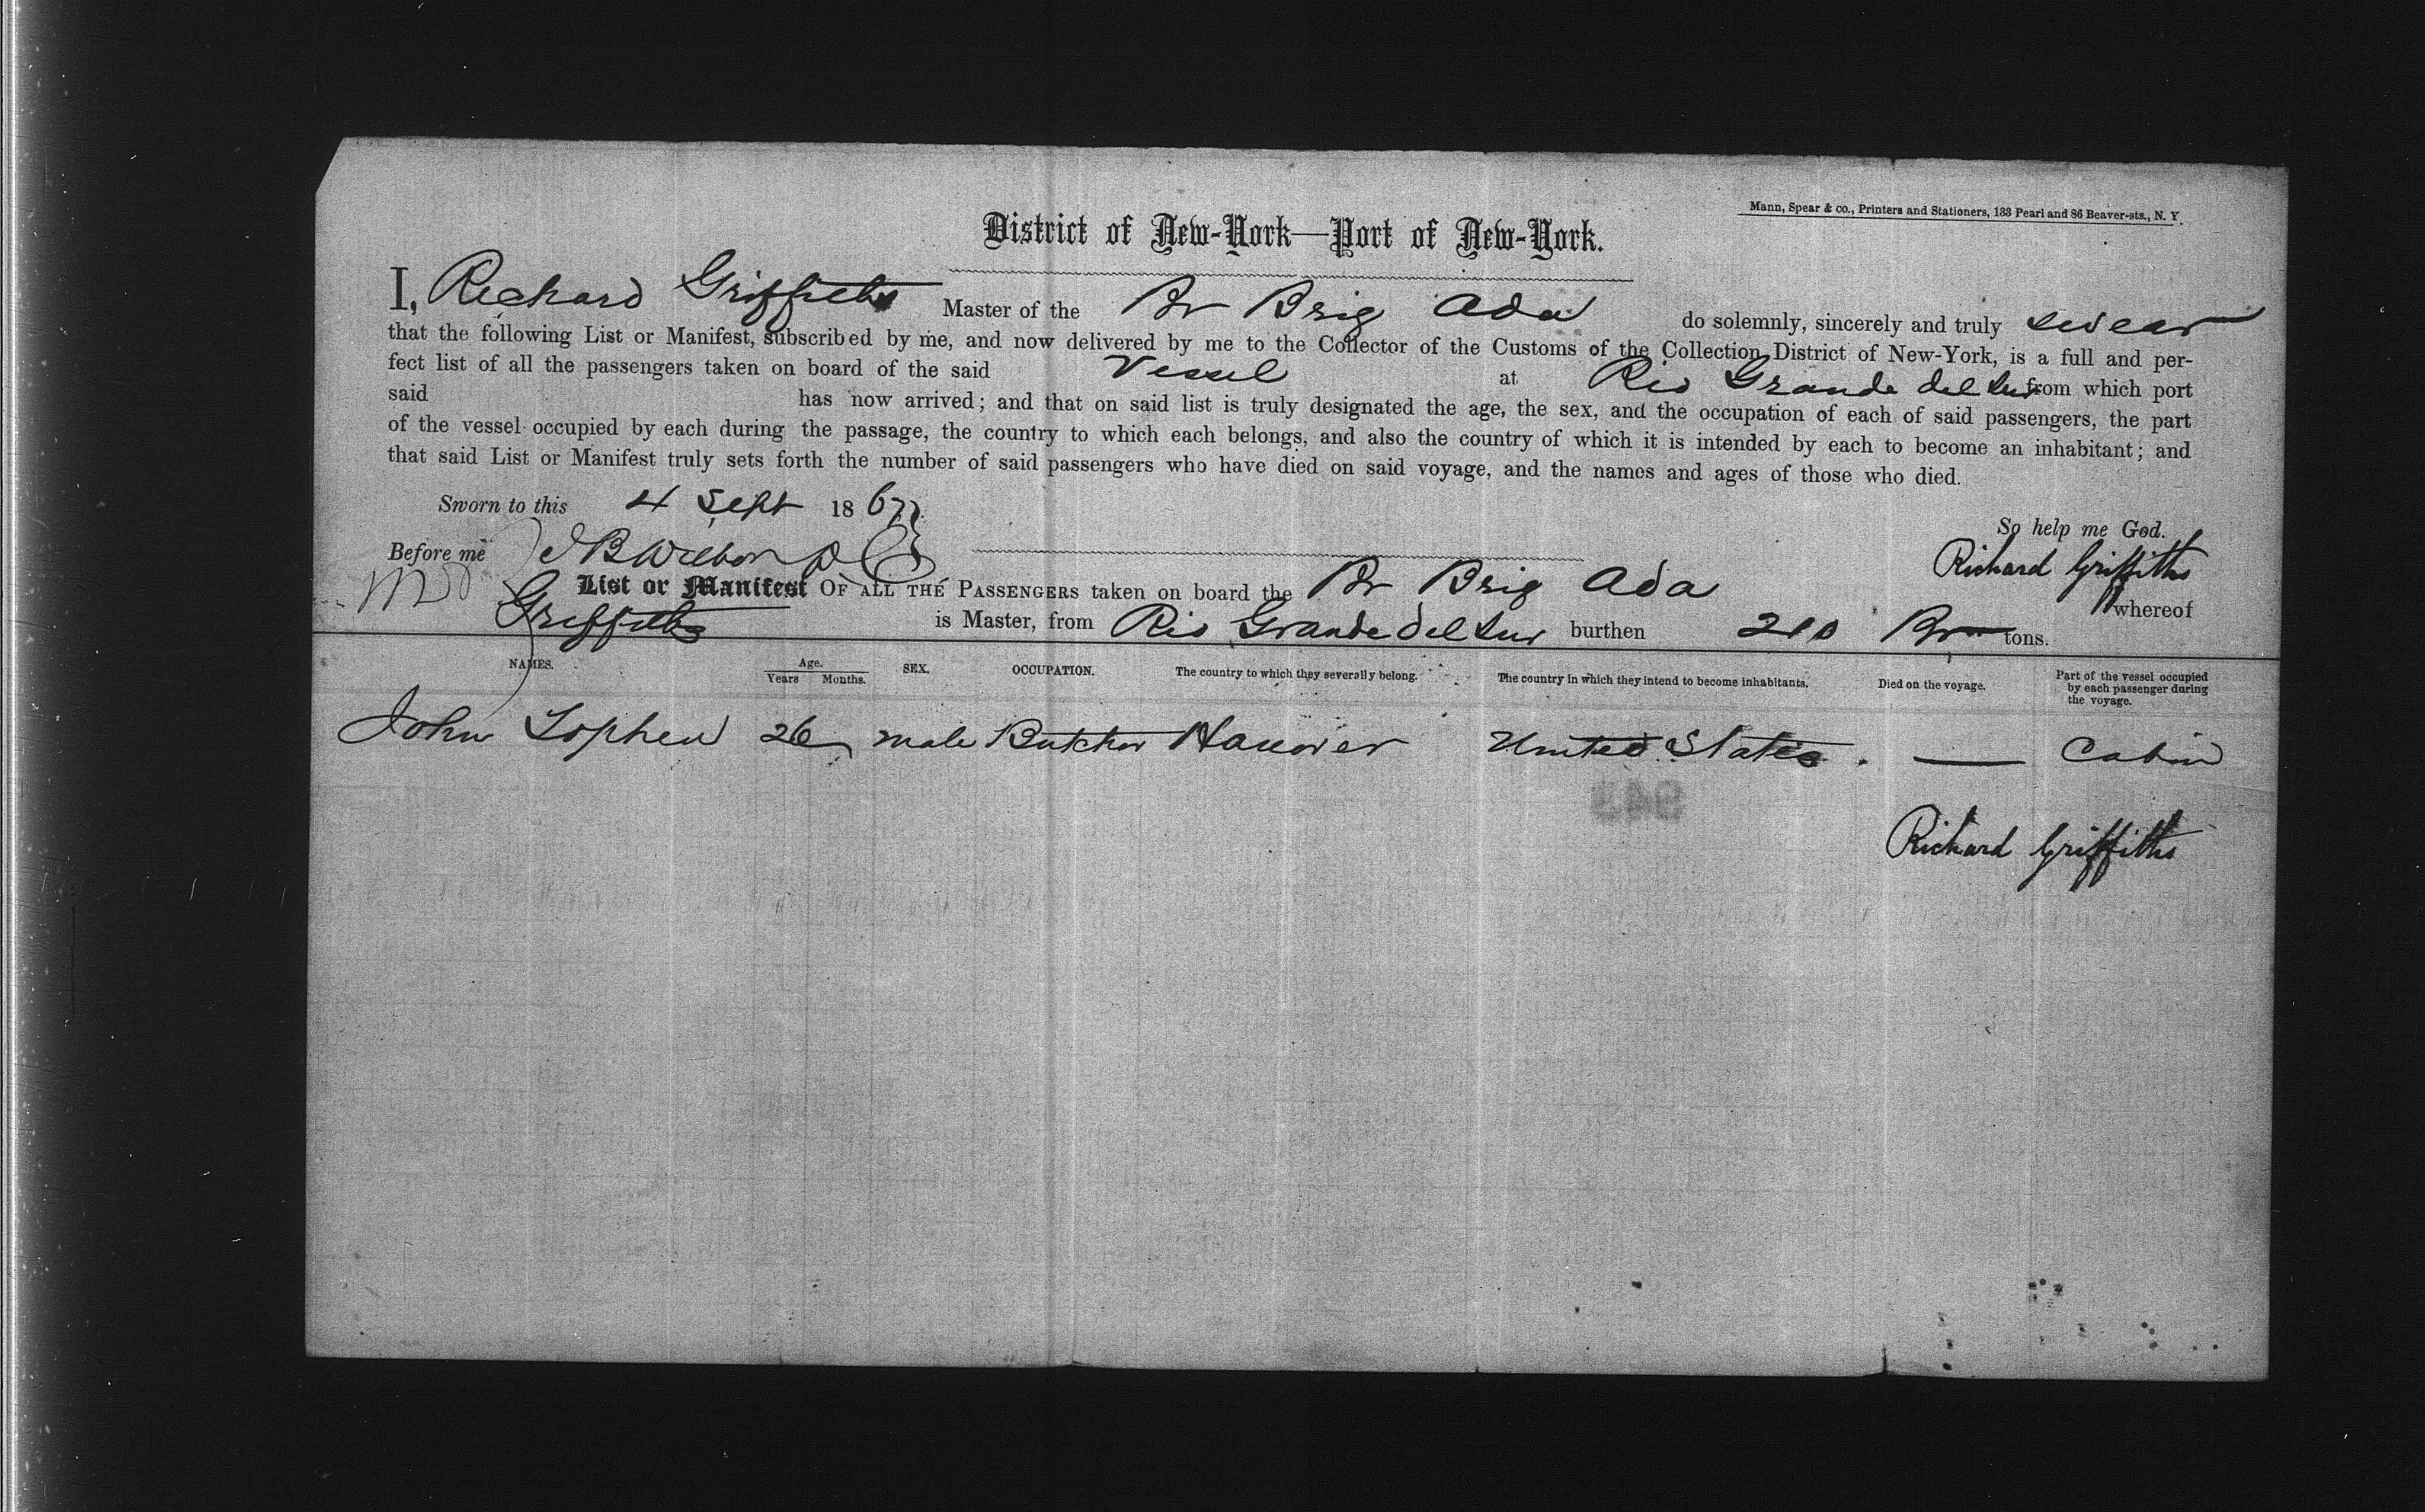 Mann, Spear & co., Printers and Stationers, 133 Pearl and 86 Beaver-sts., N. Y.
District of New-York—Port of New-York.
I, Richard Griffiths Master of the Br Brig Ada do solemnly, sincerely and truly swear
that the following List or Manifest, subscribed by me, and now delivered by me to the Collector of the Customs of the Collection District of New-York, is a full and per-
fect list of all the passengers taken on board of the said Vessel at Rio Grande del Sur from which port
said has now arrived; and that on said list is truly designated the age, the sex, and the occupation of each of said passengers, the part
of the vessel occupied by each during the passage, the country to which each belongs, and also the country of which it is intended by each to become an inhabitant; and
that said List or Manifest truly sets forth the number of said passengers who have died on said voyage, and the names and ages of those who died.
Sworn to this 4 Sept 1867
So help me God.
Before me
Richard Griffiths
List or Manifest OF ALL THE PASSENGERS taken on board the Br Brig Ada whereof
Griffiths is Master, from Rio Grande del Sur burthen 210 Br tons.
NAMES. Age. Years Months. SEX. OCCUPATION. The country to which they severally belong. The country in which they intend to become inhabitants. Died on the voyage. Part of the vessel occupied by each passenger during the voyage.
John Lophen 26 male Butcher Hanover United States. — Cabin
Richard Griffiths